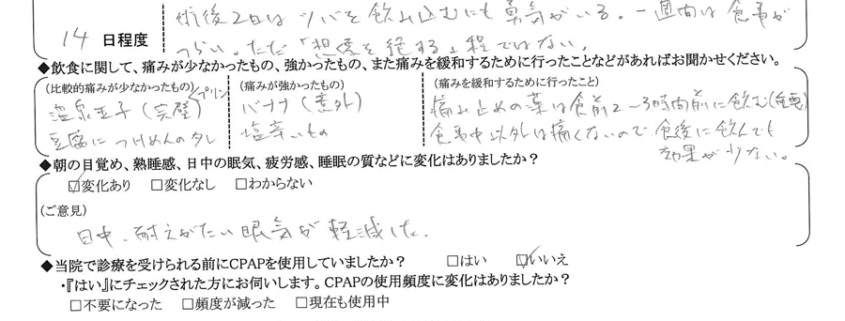 術後2日はツバを飲み込むにも勇気がいる。一週間は食事が
14 日程度
つらい。ただ「想像を絶する」程ではない。
◆飲食に関して、痛みが少なかったもの、強かったもの、また痛みを緩和するために行ったことなどがあればお聞かせください。
(比較的痛みが少なかったもの) (痛みが強かったもの) (痛みを緩和するために行ったこと)
温泉玉子(完璧) プリン バナナ(意外) 痛み止めの薬は食前2~3時間前に飲む
豆腐につけめんのタレ 塩辛いもの 食事中以外は痛くないので、食後に飲んでも
効果が少ない。
◆朝の目覚め、熟睡感、日中の眠気、疲労感、睡眠の質などに変化はありましたか?
☑変化あり □変化なし □わからない
(ご意見)
日中、耐えがたい眠気が軽減した。
◆当院で診療を受けられる前にCPAPを使用していましたか? □はい ☑いいえ
・『はい』にチェックされた方にお伺いします。CPAPの使用頻度に変化はありましたか?
□不要になった □頻度が減った □現在も使用中